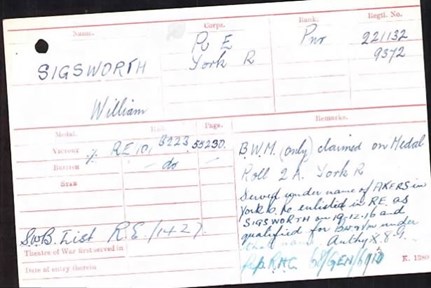 Name. Corps. Rank. Regtl. No.
SIGSWORTH R E Pnr 221132
York R 9372
William
Medal. Roll. Page. Remarks.
Victory RE 101 B223 33230. B.W.M. (only) claimed on Medal
British do Roll 2A. York R
Star Served under name of AKERS in
York R, re enlisted in RE. as
SIGSWORTH on 19-12-16 and
qualified for under
S.W.B. List R.E/1427 Authy
Theatre of War first served in
Date of entry therein K. 1380